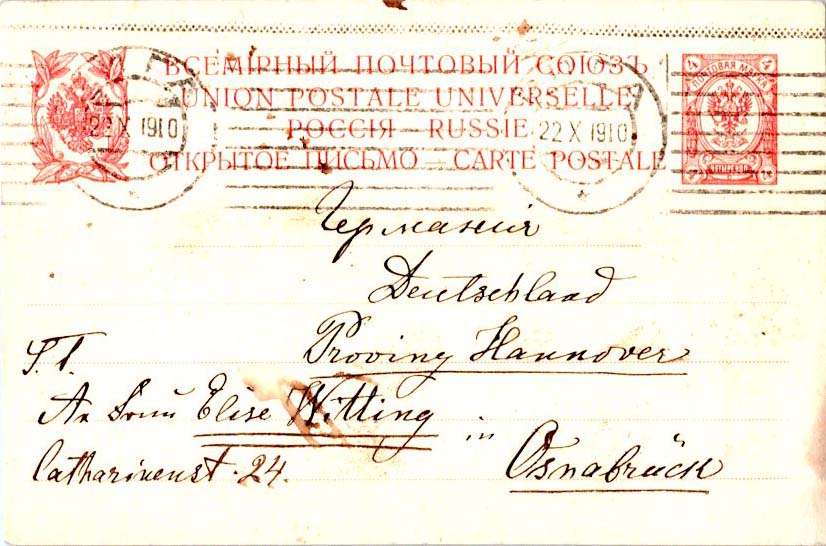 ВСЕМІРНЫЙ ПОЧТОВЫЙ СОЮЗЪ
UNION POSTALE UNIVERSELLE
РОССІЯ — RUSSIE
ОТКРЫТОЕ ПИСЬМО — CARTE POSTALE
22 X 1910
22 X 1910
4 ПОЧТОВАЯ МАРКА 4
Германія
Deutschland
Proving Hannover
S.T.
An Frau Elise Witting
in
Catharinenst. 24.
Osnabrück